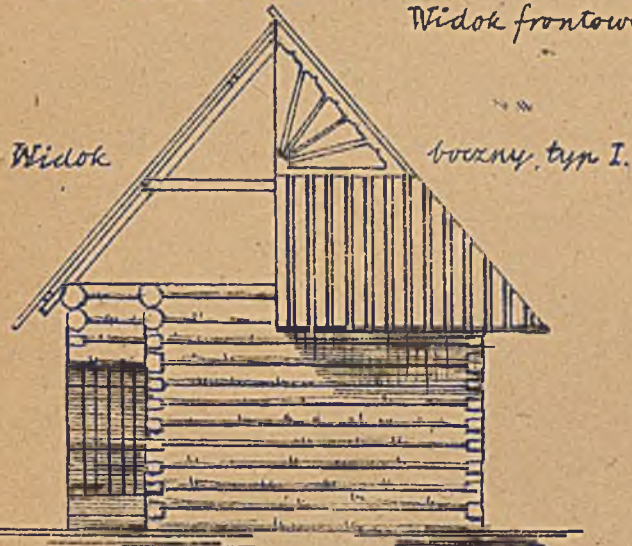 Widok frontow
Widok boczny, typ I.